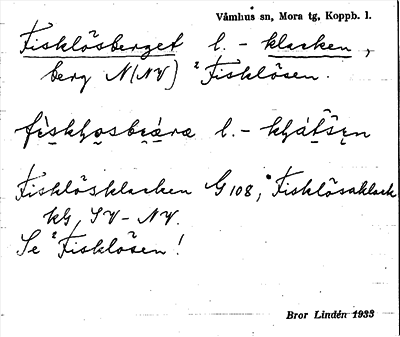 Våmhus sn, Mora tg, Koppb. l.
Fisklösberget l. - klacken,
berg N(NV) ²Fisklösen.
l. -
Fisklösklacken G 108, Fisklösaklack
kG, SV-NV.
Se ²Fisklösen!
Bror Lindén 1933